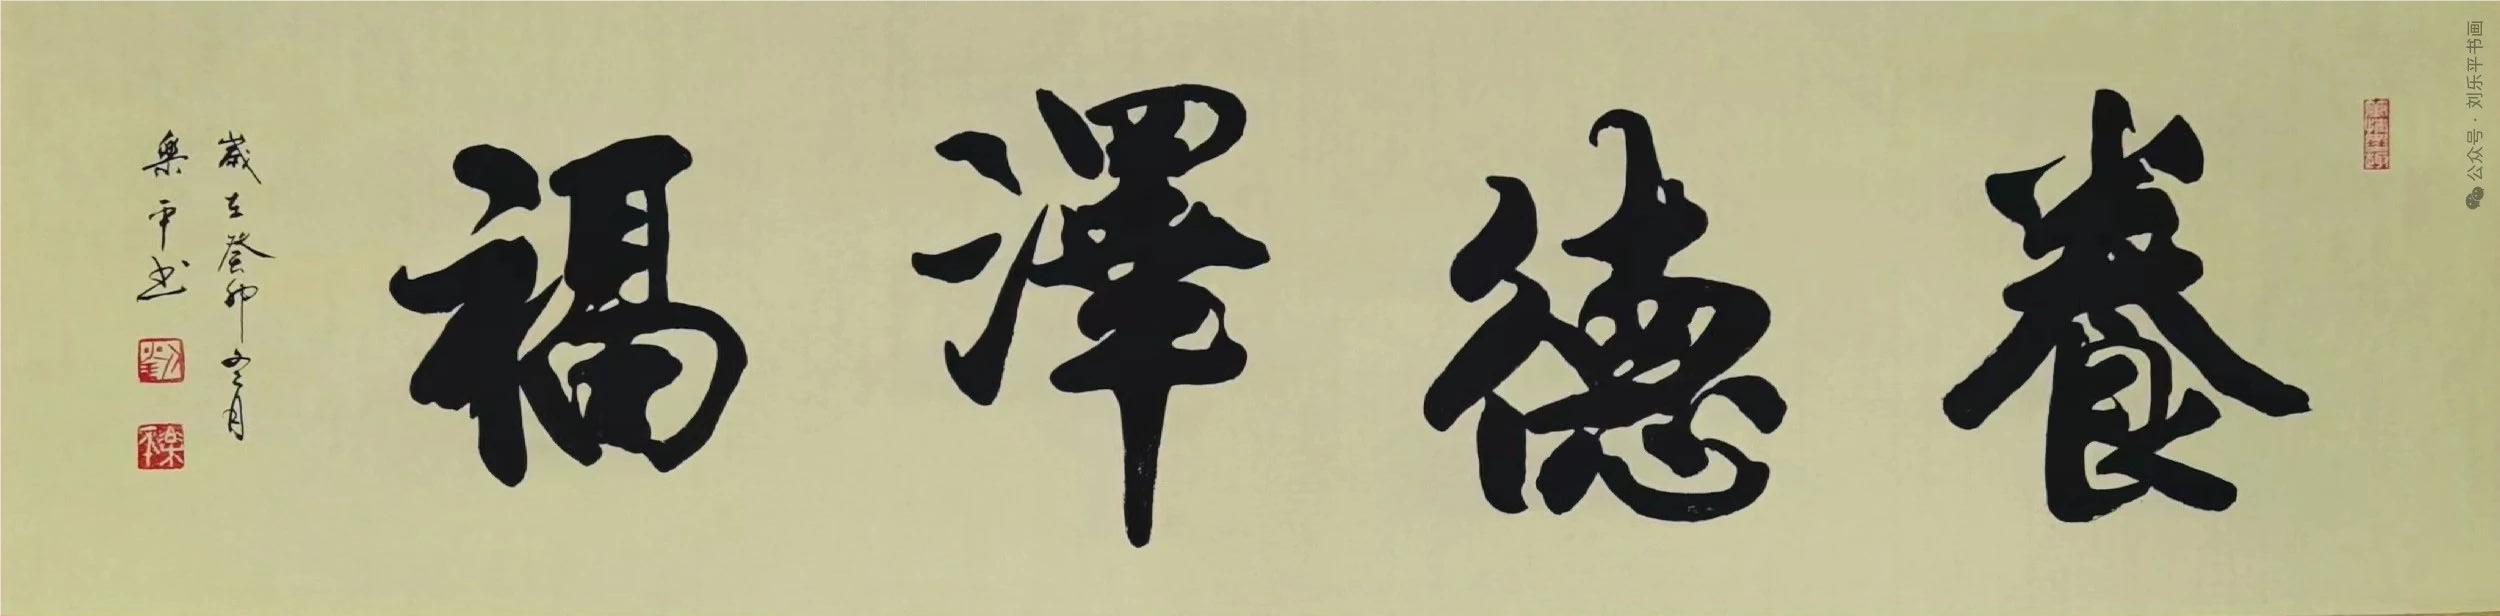 養德澤福
歲在癸卯冬月
樂平书
公众号·刘乐平书画